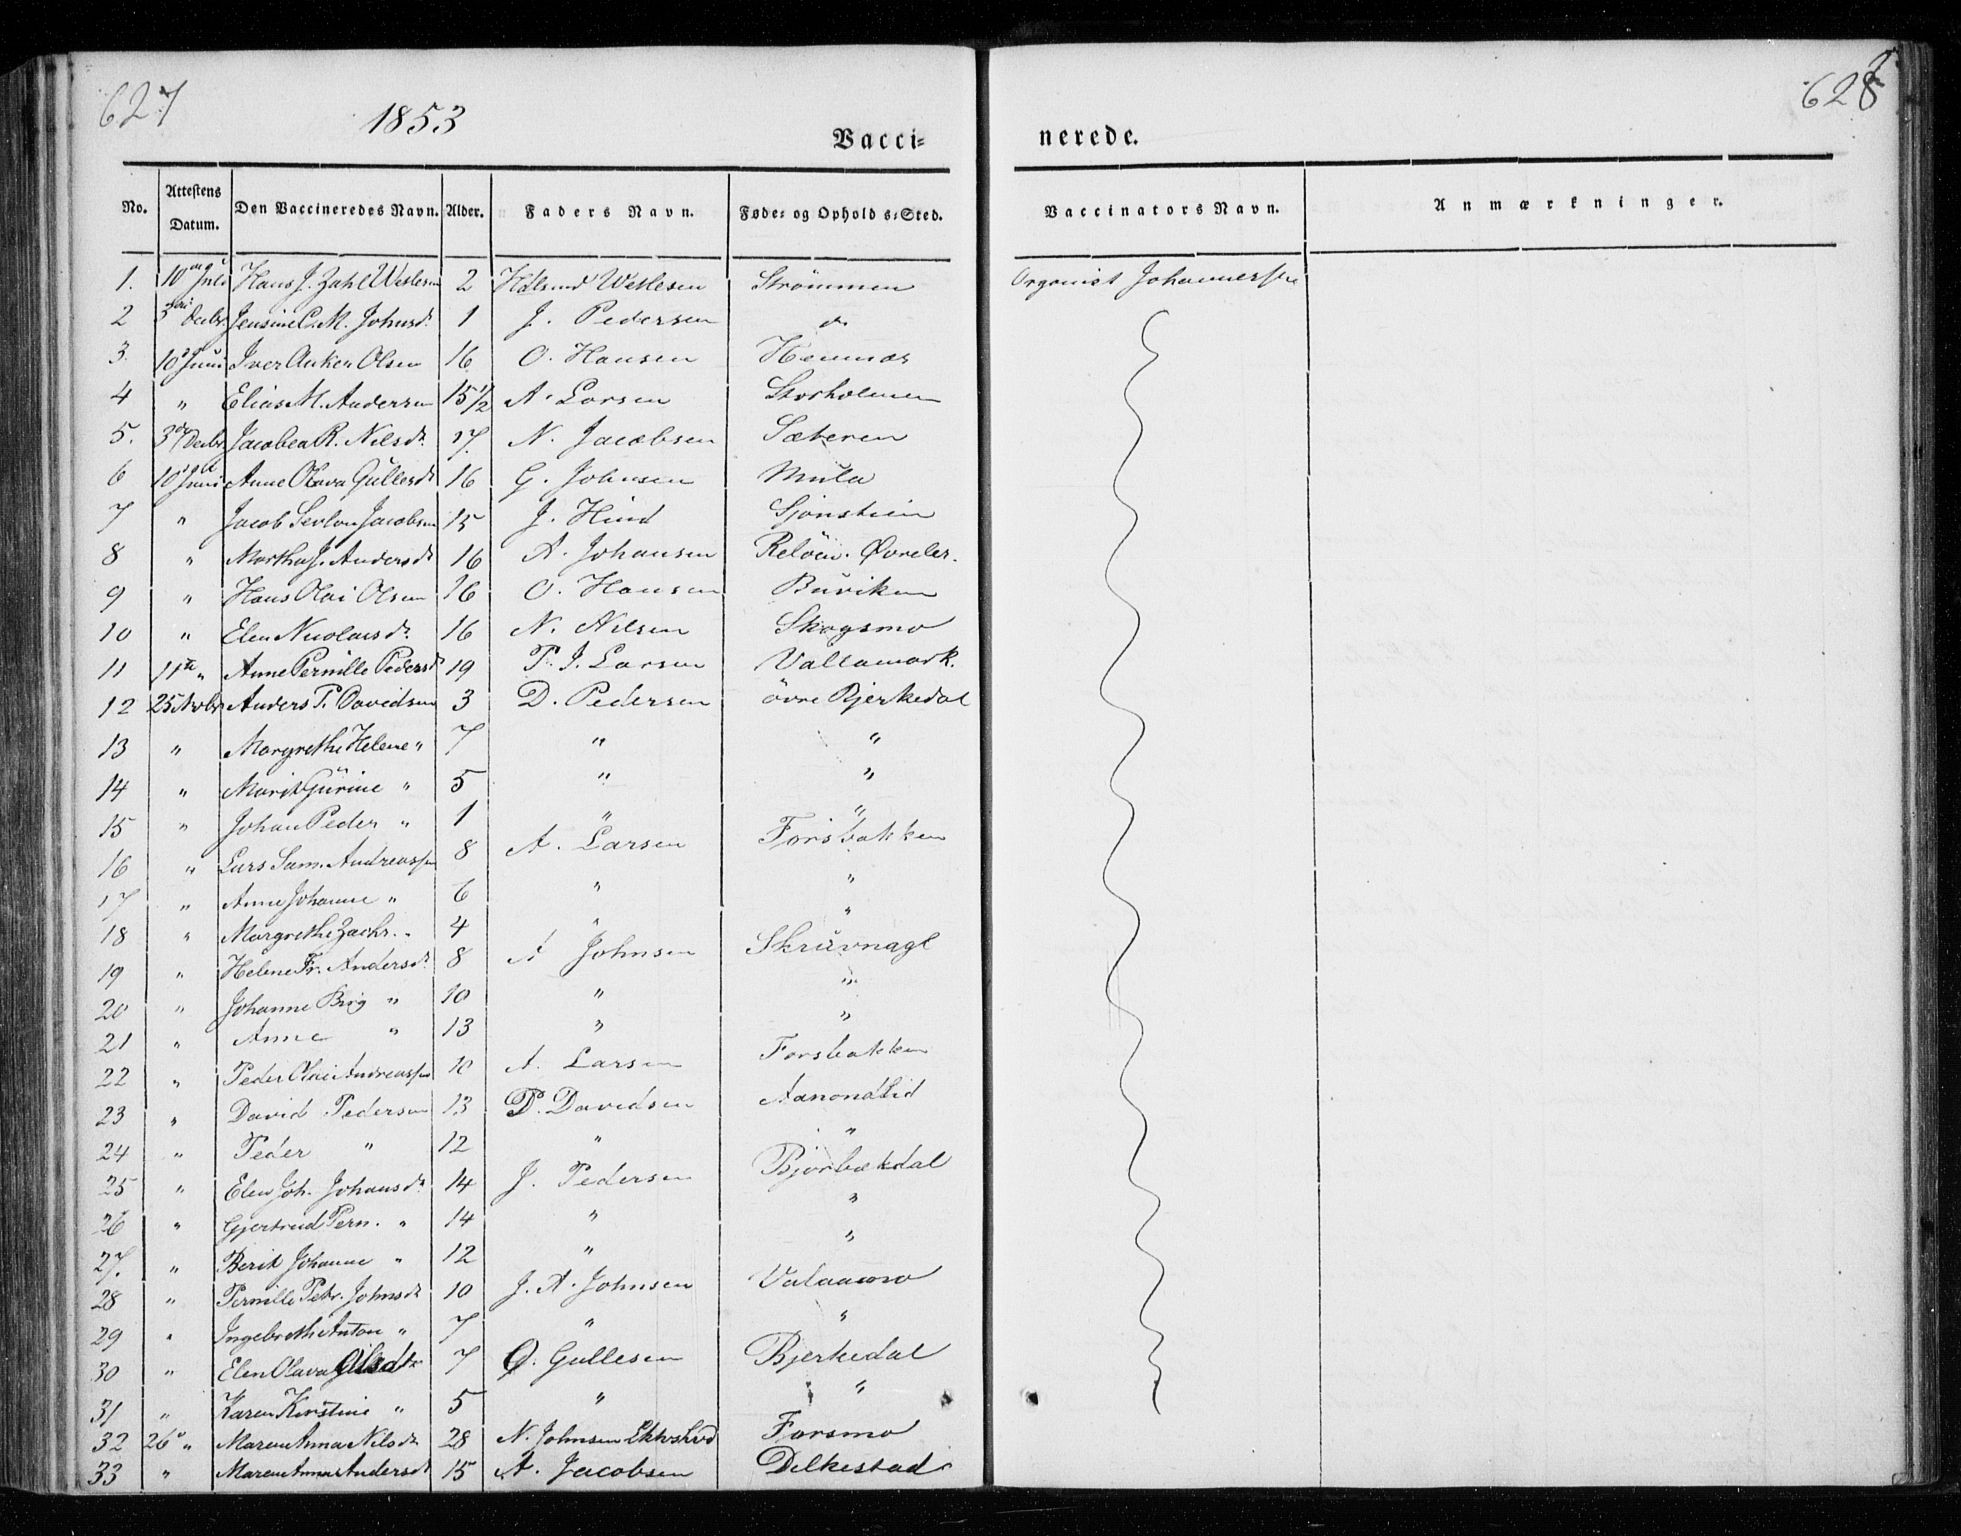 627
628
1853
Vacci- nerede.
No. Attestens Datum. Den Vaccineredes Navn. Alder. Faders Navn. Føde- og Opholds-Sted. Vaccinators Navn. Anmærkninger.
1. 10de Juli Hans J. Zahl Wetlesen 2 Wetlesen Strömmen Organist Johannessen
2 3die Decbr Jensine C. M. Johnsd. 1 J. Pedersen do
3. 10 Juni Iver Anken Olsen 16 O. Hansen Hemnæs
4 " Elias M. Andersen 15 1/2 A. Larsen Storholmen
5. 3die Decbr Jacobea R. Nilsdr 17. N. Jacobsen Sæteren
6 10 Juni Anne Olava Gullesdr 16 G. Johnsen Mula
7 " Jacob Jacobsen 15 J. Hind Sjonstien
8 " Martha J. Andersdr 16 A. Johansen Reløen. Øvreler.
9 " Hans Olai Olsen 16 O. Hansen Buviken
10 " Elen Nicolaisdr 16 N. Nilsen Skogsmo
11 11te " Anne Pernille Pedersdr 19 P. J. Larsen Vallamark.
12 25 Novbr Anders P. Davidsen 3 D. Pedersen övre Bjerkedal
13 " Margrethe Helene " 7 " "
14 " Marit Gurine " 5 " "
15 " Johan Peder " 1 " "
16 " Lars Sam. Andreassen 8 A. Larsen Forsbakken
17 " Anne Johanne " 6 " "
18 " Margrethe Zachr. " 4 " "
19 " Helene Fr. Andersdr 8 A Johnsen Skruvnagl
20 " Johanne Birg " 10 " "
21 " Anne " 13 " "
22 " Peder Olai Andreassen 10 A. Larsen Forsbakken
23 " David Pedersen 13 P. Davidsen Aanondlid
24 " Peder " 12 " "
25 " Elen Joh. Johansdr 14 J. Pedersen Bjorbækdal
26 " Gjertrud Pern. " 14 " "
27. " Berit Johanne " 12 " "
28 " Pernille Petr. Johnsdr 10 J. A. Johnsen Valaamo
29 " Ingebreth Anton " 7 " "
30 " Elen Olava Olsdtr 7 O. Gullesen Bjerkedal
31 " Karen Kirstine " 5 " "
32 26 " Maren Anna Nilsdr 28 N. Johnsen Forsmo
33 " Maren Anna Andersdr 15 A. Jacobsen Delkestad